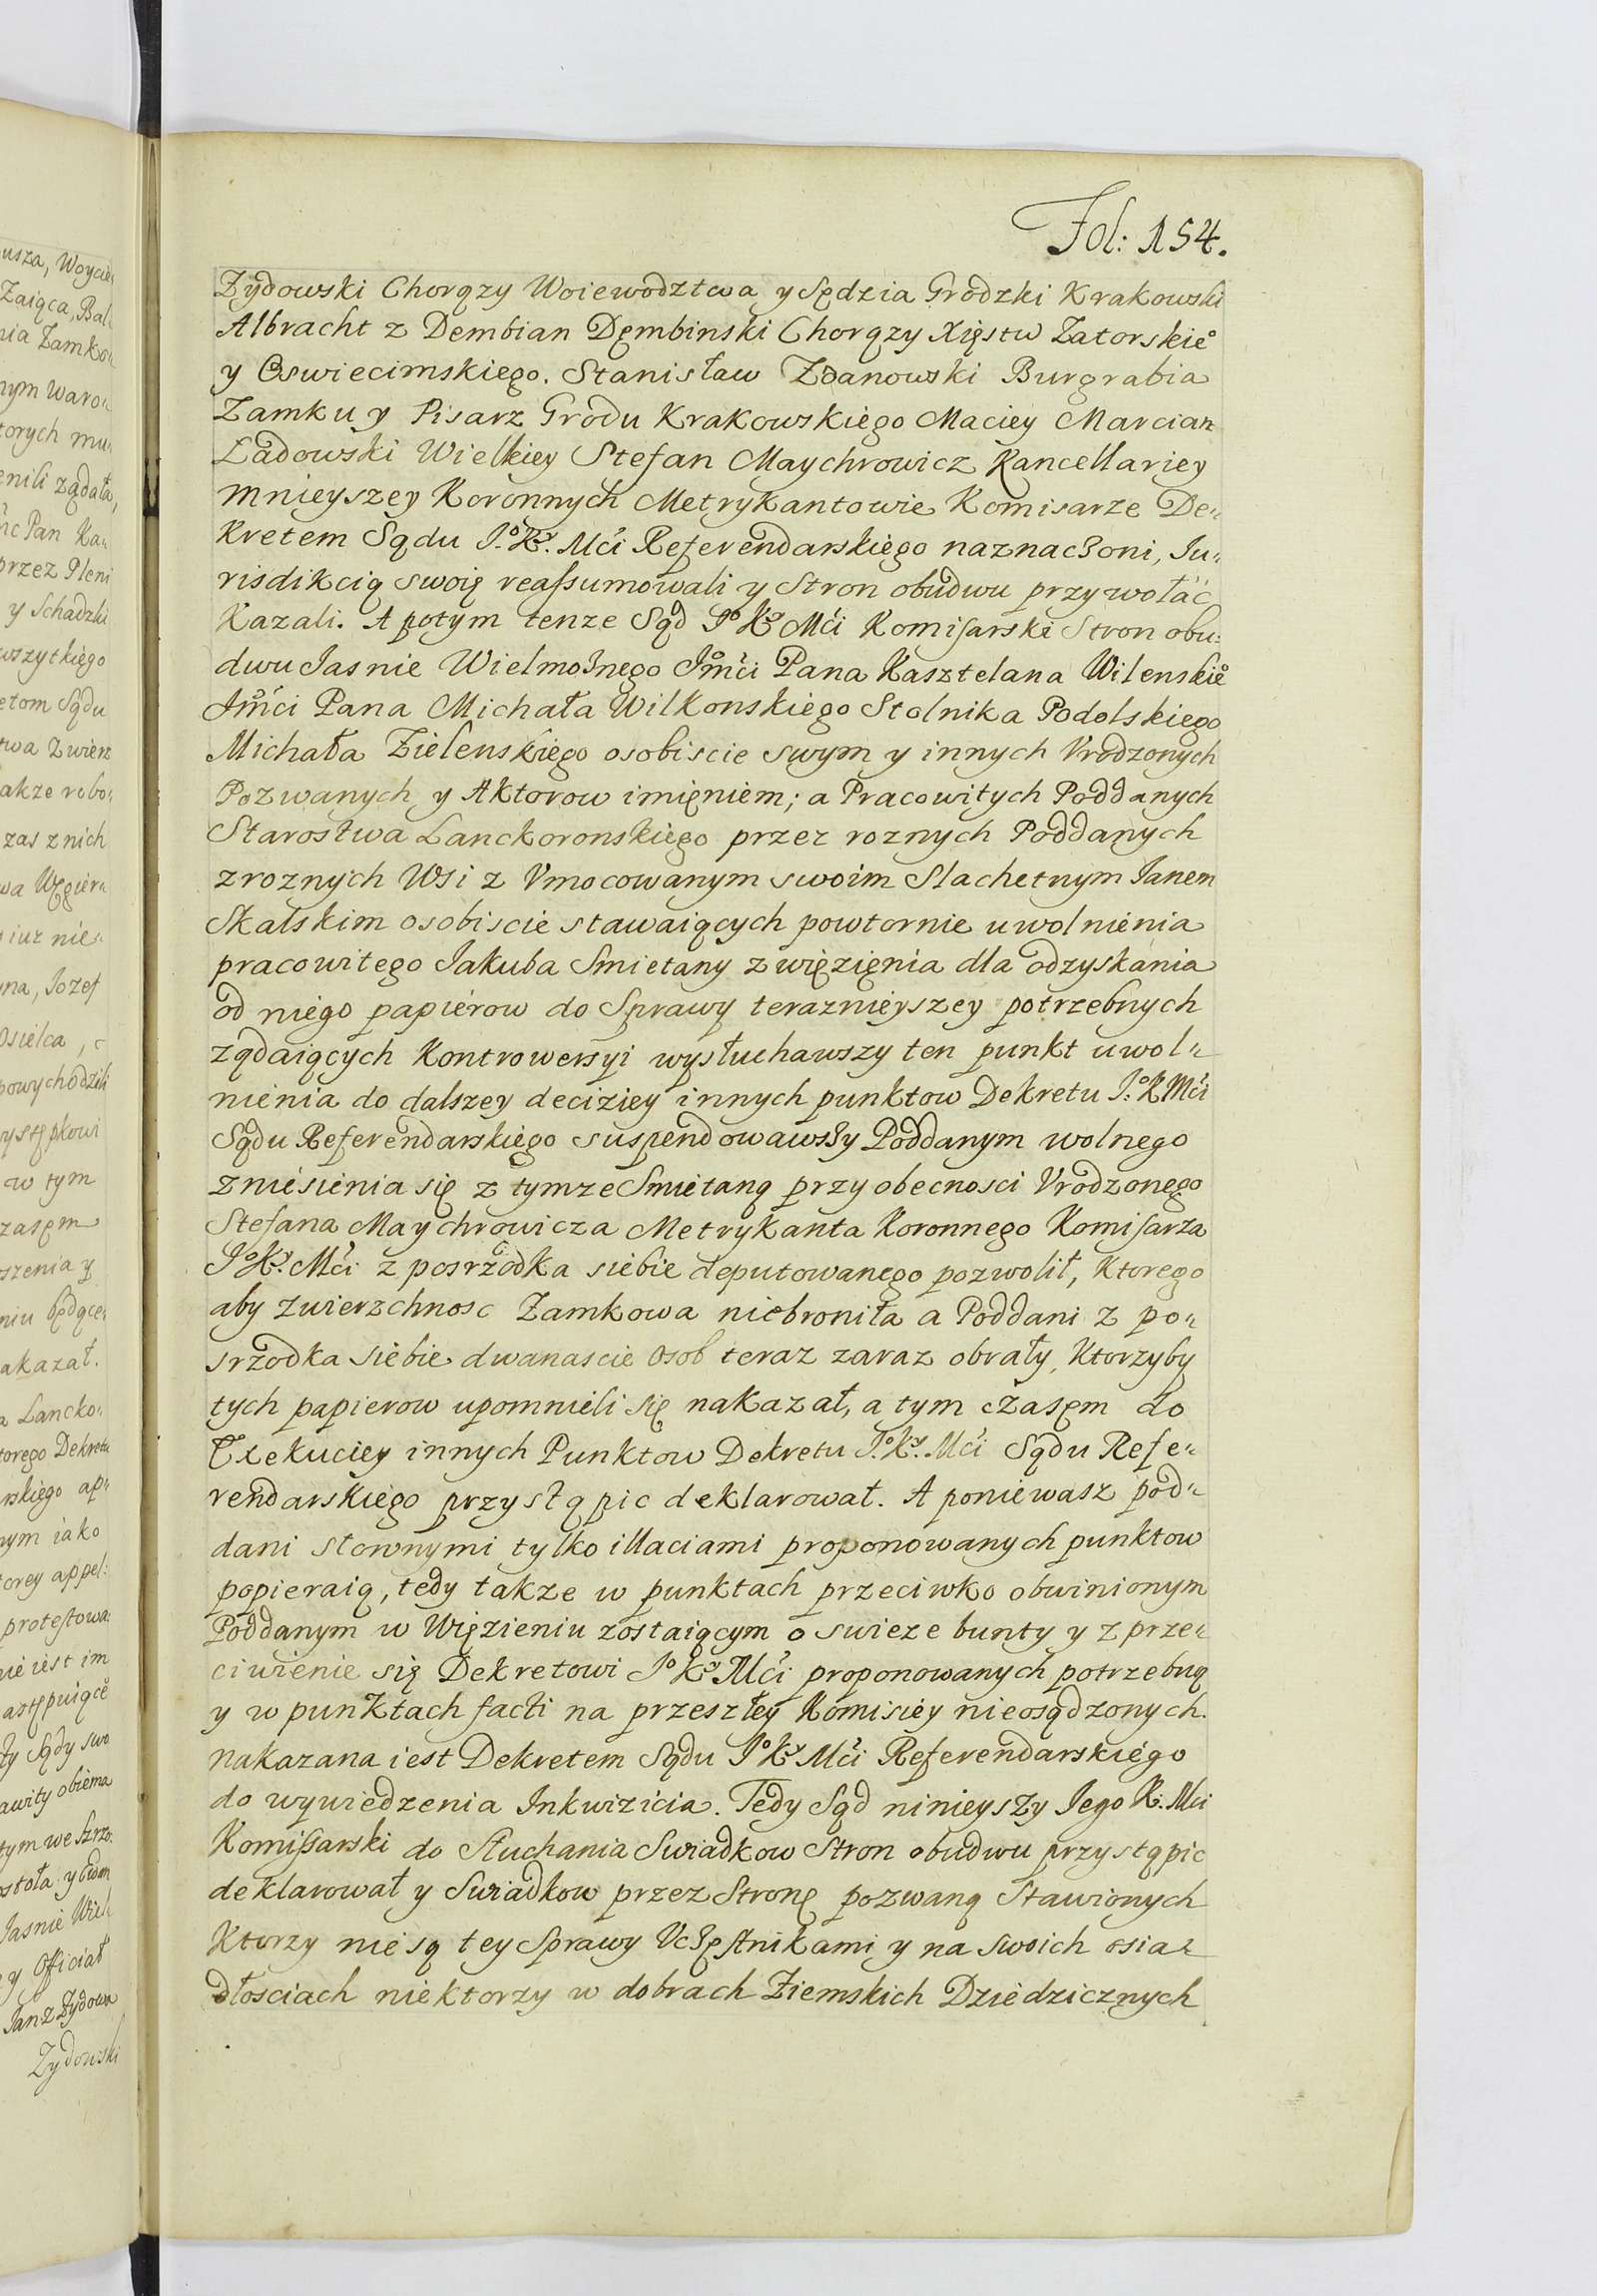 Fol: 154.
Zydowski Chorązy Woiewodztwa y Sędzia Grodzki Krakowski
Albracht z Dembian Dęmbinski Chorązy Xięstw Zatorskieº
y Oswiecimskiego. Stanisław Zdanowski Burgrabia
Zamku y Pisarz Grodu Krakowskiego Maciey Marcian
Ladowski Wielkiey Stefan Maychrowicz Kancellariey
mnieyszey Koronnych Metrykantowie Komisarze De„
kretem Sądu Jº. Kʸ. Mći Referendarskiego naznaczoni, Ju„
risdikcią swoię reassumowali y Stron obudwu przywołać
Kazali. A potym tenze Sąd Jº Kʸ Mći Komisarski Stron obu„
dwu Jasnie Wielmożnego Jmći Pana Kasztelana Wilenskieº
Jmći Pana Michała Wilkonskiego Stolnika Podolskiego
Michała Zielenskiego osobiscie swym y innych Vrodzonych
Pozwanych y Aktorow imięniem; a Pracowitych Poddanych
Starostwa Lanckoronskiego przez roznych Poddanych
z roznych Wsi z Vmocowanym swoim Slachetnym Janem
Skalskim osobiscie stawaiących powtornie uwolnienia
pracowitego Jakuba Smietany z więzięnia dla odzyskania
od niego papierow do Sprawy teraznieyszey potrzebnych
ządaiących kontrowersyi wysłuchawszy ten punkt uwol„
nienia do dalszey deciziey innych punktow Dekretu Jº. K Mći
Sądu Referendarskiego suspendowawszy Poddanym wolnego
zniesienia się z tymze Smietaną przy obecnosci Vrodzonego
Stefana Maychrowicza Metrykanta Koronnego Komisarza
Jº Kʸ. Mći z posrzodka siebie deputowanego pozwolił, ktorego
aby zwierzchnosc Zamkowa niebroniła a Poddani z po„
srzodka siebie dwanascie osob teraz zaraz obrały, ktorzyby
tych papierow upomnieli się nakazał, a tym czasęm do
Exekuciey innych Punktow Dekretu Jº. Kʸ. Mći Sądu Refe„
rendarskiego przystąpic deklarował. A poniewasz pod„
dani słownymi tylko illaciami proponowanych punktow
popieraią, tedy takze w punktach przeciwko obwinionym
Poddanym w Więzieniu zostaiącym o swieze bunty y zprze„
ciwienie się Dekretowi Jº Kʸ Mći proponowanych potrzebną
y w punktach facti na przeszłey Komisiey nieosądzonych.
nakazana iest Dekretem Sądu Jº Kʸ Mći Referendarskiego
do wywiedzenia Inkwizicia. Tedy Sąd ninieyszy Jego K. Mci
Komissarski do Słuchania Swiadkow Stron obudwu przystąpic
deklarował y Swiadkow przez Stronę pozwaną Stawionych
Ktorzy nie są tey Sprawy Vczęstnikami y na swoich osia„
dłosciach niektorzy w dobrach Ziemskich Dziedzicznych